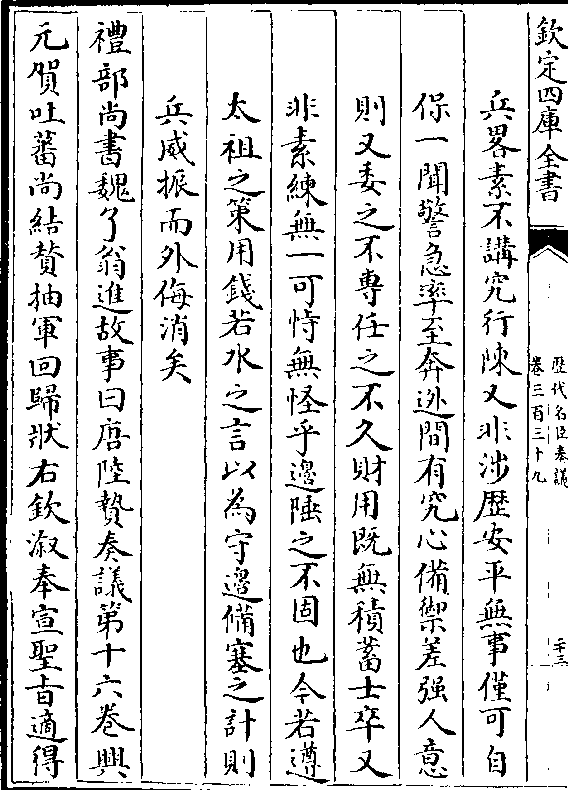 欽定四庫全書
歷代名臣奏議
卷三百三十九
二十三
兵畧素不講究行陳又非涉歷安平無事僅可自
保一聞警急率至奔逊間有究心備禦差强人意
則又委之不專任之不久財用既無積蓄士卒又
非素練無一可恃無怪乎邊陲之不固也今若遵
太祖之策用錢若水之言以為守邊備塞之計則
兵威振而外侮消矣
禮部尚書魏了翁進故事曰唐陸贄奏議第十六卷興
元賀吐蕃尚結贊抽軍回歸狀右欽溆奉宣聖旨適得